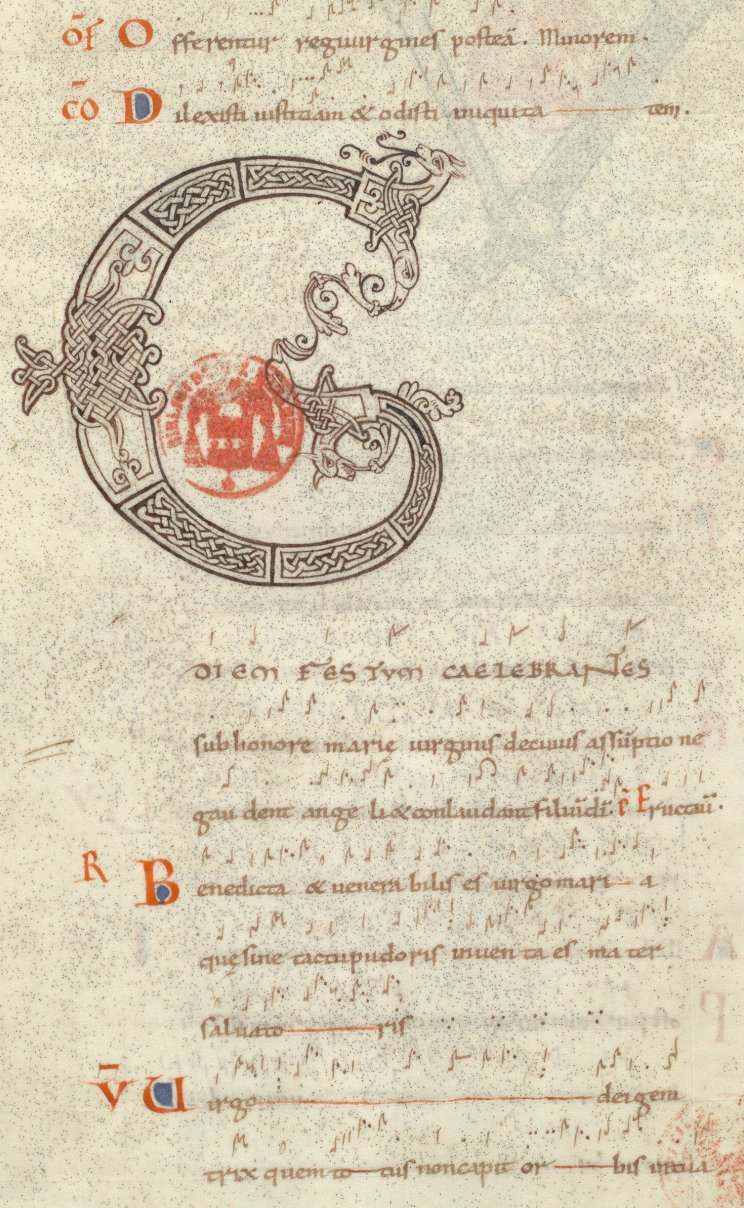 of̄ Offerentur regi uirgines posteā. Minorem.
c̄o Dilexisti iustitiam & odisti iniquita tem.
G
DIEM FESTVM CAELEBRANTES
sub honore marie uirginis de cuius assūptio ne
gau dent ange li & conlaudant filiū dī. p̄ Eructauī.
R Benedicta & uenera bilis es uirgo mari a
quę sine tactu pudoris inuen ta es ma ter
saluato ris
v̄ Uirgo dei gem
trix quem to tus non capit or bis in tua